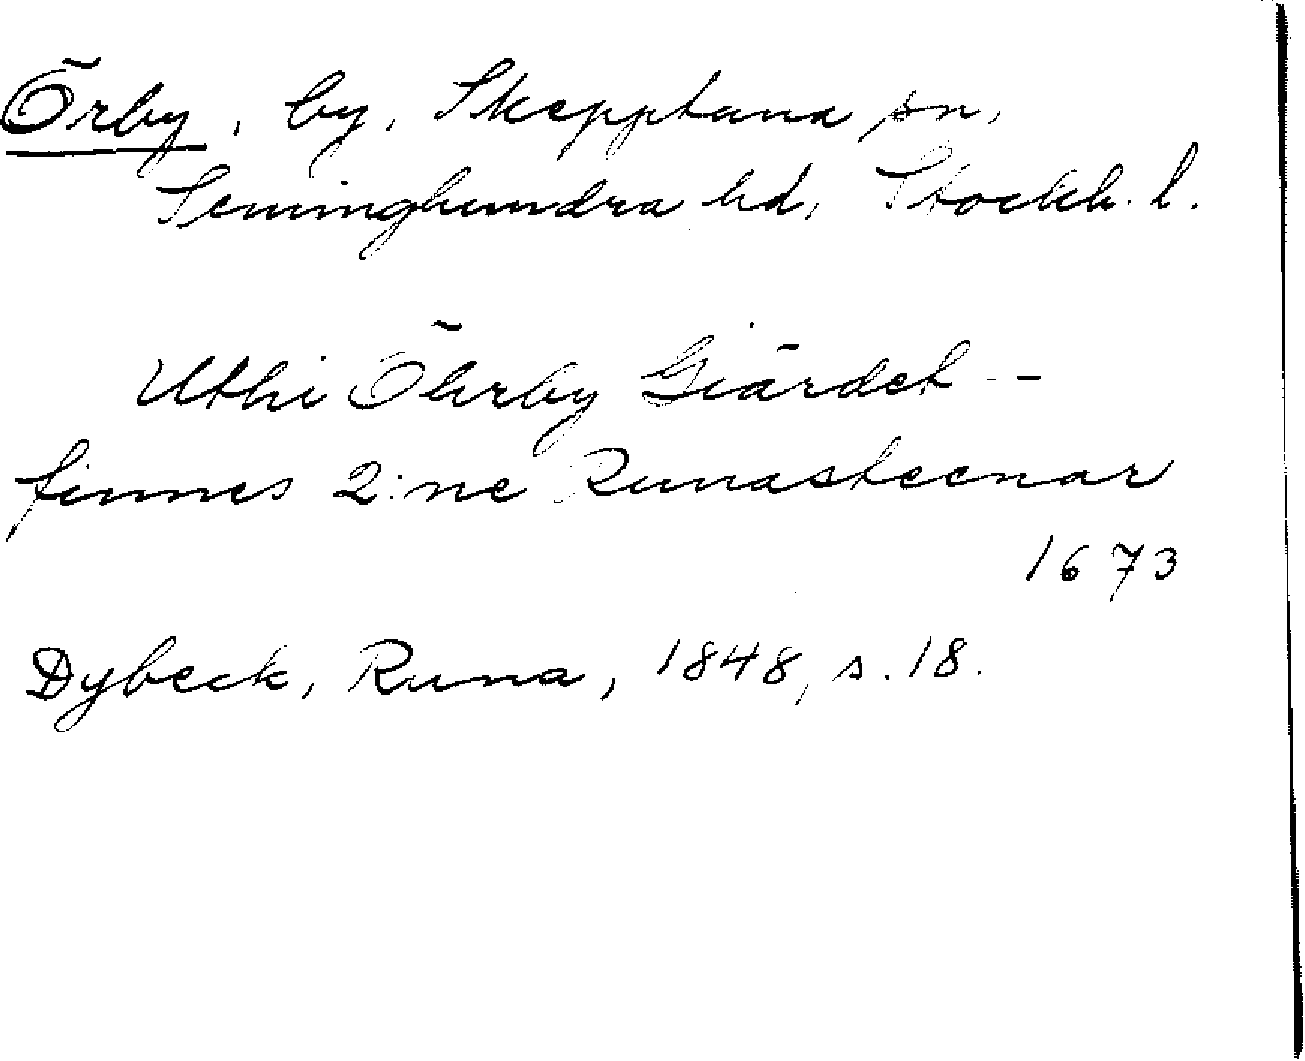 Örby, by, Skepptuna sn,
Seminghundra hd, Stockh. l.
Uthi Öhrby Giärdet --
finnes 2:ne Runasteenar
1673
Dybeck, Runa, 1848, s. 18.